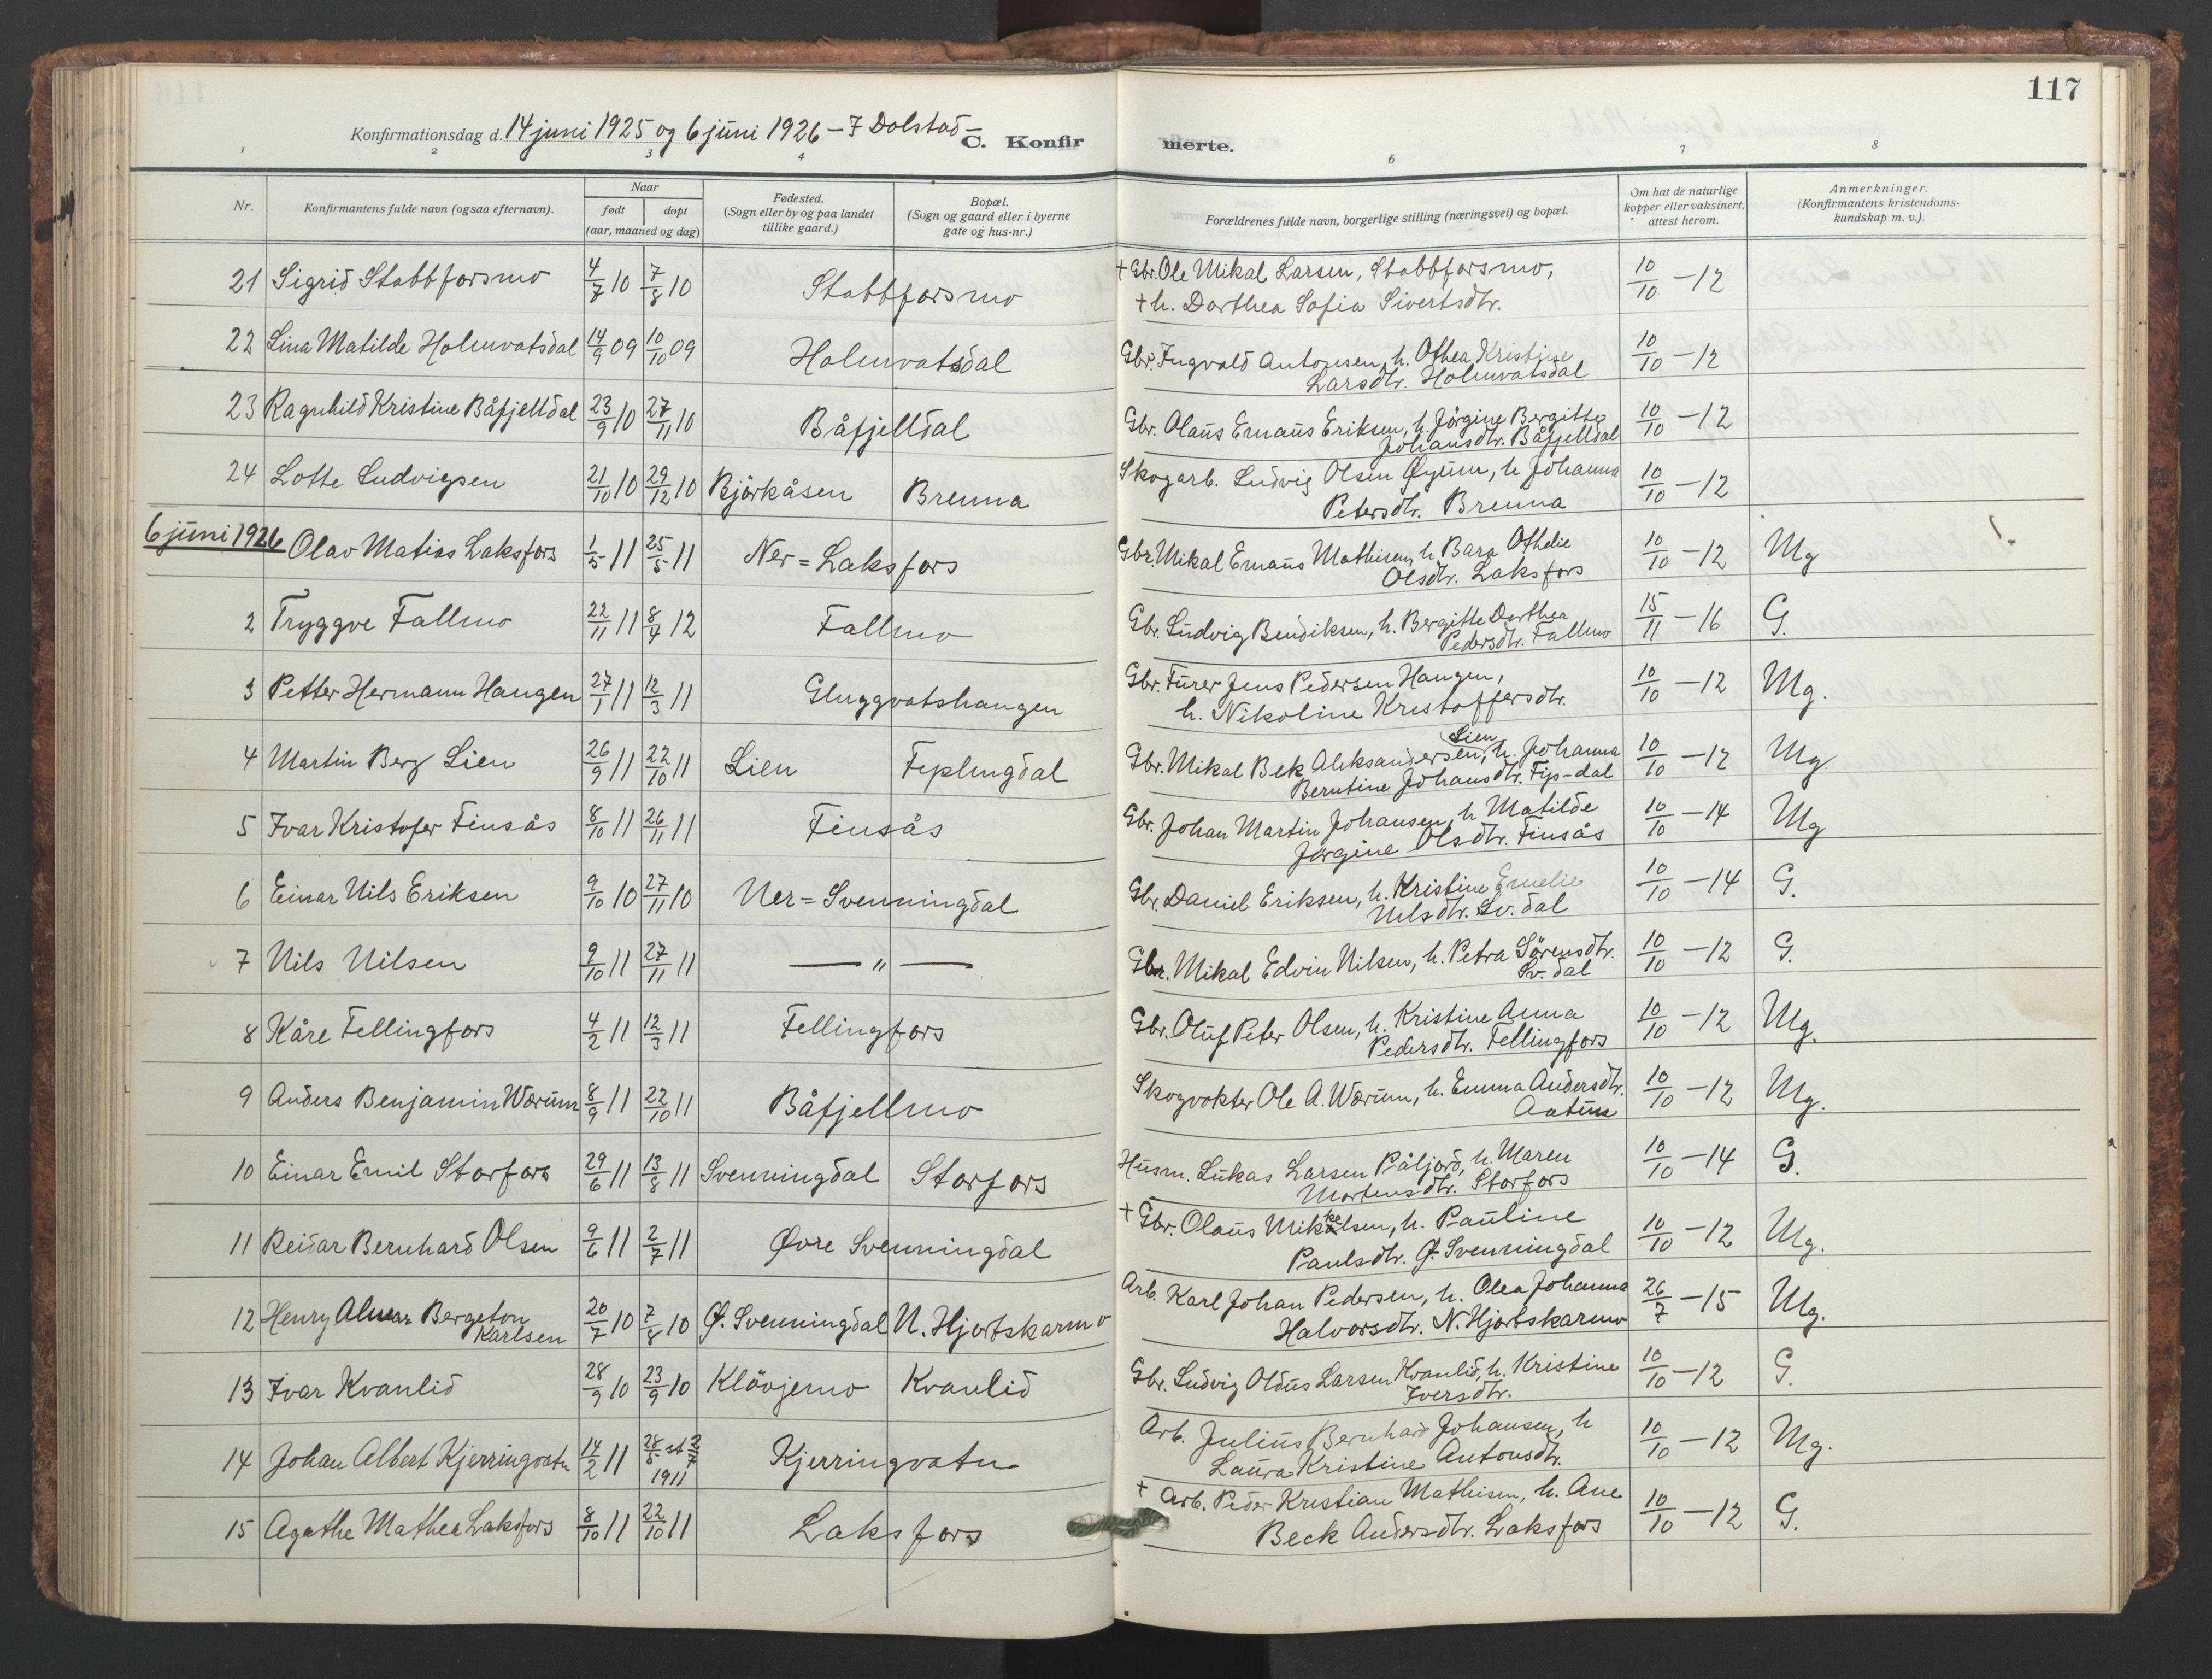 117
Konfirmationsdag d. 14 juni 1925 og 6 juni 1926 – F Dolstad –
C. Konfirmerte.
1 2 3 4 6 7 8
Nr.
Konfirmantens fulde navn (ogsaa efternavn).
Naar
født
døpt
(aar, maaned og dag)
Fødested.
(Sogn eller by og paa landet
tillike gaard.)
Bopæl.
(Sogn og gaard eller i byerne
gate og hus-nr.)
Forældrenes fulde navn, borgerlige stilling (næringsvei) og bopæl.
Om hat de naturlige
kopper eller vaksinert,
attest herom.
Anmerkninger.
(Konfirmantens kristendoms-
kundskap m. v.).
21 Sigrid Stabbforsmo 4/7 10 7/8 10 Stabbforsmo + Gbr. Ole Mikal Larsen, Stabbforsmo, 10/10 – 12
+ h. Dorthea Sofia Sivertsdtr.
22 Lina Matilde Holmvatsdal 14/9 09 10/10 09 Holmvatsdal Gbr. Ingvald Antonsen, h. Othea Kristine 10/10 – 12
Larsdtr. Holmvatsdal
23 Ragnhild Kristine Båfjelldal 23/9 10 27/11 10 Båfjelldal Gbr. Olaus Emaus Eriksen, h. Jörgine Bergitte 10/10 – 12
Johansdtr. Båfjelldal
24 Lotte Ludvigsen 21/10 10 29/12 10 Björkåsen Brenna Skogarb. Ludvig Olsen Øyum, h Johanna 10/10 – 12
Petersdtr. Brenna
6 juni 1926 Olav Matias Laksfors 1/5 11 25/5 11 Ner = Laksfors Gbr. Mikal Emaus Mathisen, h. Bara Othelie 10/10 – 12 Mg
Olsdtr. Laksfors
2 Tryggve Fallmo 22/11 11 8/4 12 Fallmo Gbr. Ludvig Bendiksen, h. Bergitte Dorthea 15/11 – 16 G.
Pedersdtr. Fallmo
3 Petter Hermann Haugen 27/1 11 12/3 11 Gluggvatshaugen Gbr. Furer Jens Pedersen Haugen, 10/10 – 12 Mg.
h. Nikoline Kristoffersdtr.
4 Martin Berg Lien 26/9 11 22/10 11 Lien Fiplingdal Gbr. Mikal Bek Aleksandersen Lien, h. Johanna 10/10 – 12 Mg
Berntine Johansdtr. Fip-dal
5 Ivar Kristofer Finsås 8/10 11 26/11 11 Finsås Gbr. Johan Martin Johansen, h Matilde 10/10 – 14 Mg
Jørgine Olsdtr. Finsås
6 Einar Nils Eriksen 9/10 10 27/11 10 Ner = Svenningdal Gbr. Daniel Eriksen, h. Kristine Emelie 10/10 – 14 G.
Nilsdtr. Sv. dal
7 Nils Nilsen 9/10 11 27/11 11 — " — Gbr. Mikal Edvin Nilsen, h. Petra Sörensdtr. 10/10 – 12 G.
Sv. dal
8 Kåre Fellingfors 4/2 11 12/3 11 Fellingfors Gbr. Oluf Peter Olsen, h. Kristine Anna 10/10 – 12 Mg.
Pedersdtr. Fellingfors
9 Anders Benjamin Wærum 8/9 11 22/10 11 Båfjellmo Skogvokter Ole A. Wærum, h. Emma Andersdtr. 10/10 – 12 Mg.
10 Einar Emil Storfors 29/6 11 13/8 11 Svenningdal Storfors Husm. Lukas Larsen Påljord, h. Maren 10/10 – 14 G.
Mortensdtr. Storfors
11 Reidar Bernhard Olsen 9/6 11 2/7 11 Øvre Svenningdal + Gbr. Olaus Mikkelsen, h. Pauline 10/10 – 12 Mg.
Paulsdtr. Ø. Svenningdal
12 Henry Alvar Bergeton 20/7 10 7/8 10 Ø. Svenningdal N. Hjortskarmo Arb. Karl Johan Pedersen, h. Olea Johanna 26/7 – 15 Mg.
Karlsen Halvorsdtr. N. Hjortskarmo
13 Ivar Kvanlid 28/9 10 23/9 10 Klövjemo Kvanlid Gbr. Ludvig Oldus Larsen Kvanlid, h. Kristine 10/10 – 12 G.
Iversdtr.
14 Johan Albert Kjerringvatn 14/2 11 28/5 st 2/7 Kjerringvatn Arb. Julius Bernhard Johansen, h 10/10 – 12 Mg.
1911 Laura Kristine Antonsdtr.
15 Agathe Mathea Laksfors 8/10 11 22/10 11 Laksfors + Arb. Peder Kristian Mathisen, h. Ane 10/10 – 12 G.
Beck Andersdtr. Laksfors